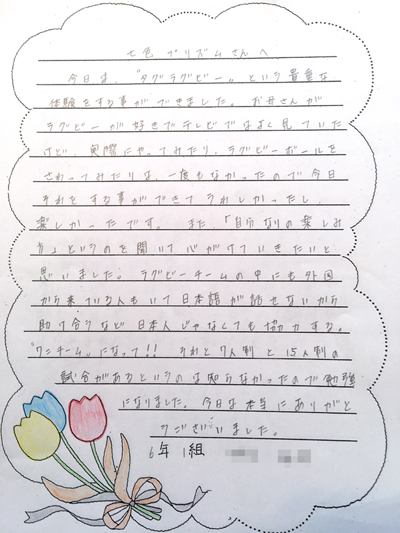 七色プリズムさんへ
今日は、"タグラグビー"という貴重な
体験をする事ができました。お母さんが
ラグビーが好きでテレビではよく見ていた
けど、実際にやってみたり、ラグビーボールを
さわってみたりは、一度もなかったので今日
それをする事ができてうれしかったし、
楽しかったです。また「自分なりの楽しみ
方」というのを聞いて心がけていきたいと
思いました。ラグビーチームの中にも外国
から来ている人もいて日本語が話せないから
助け合うなど日本人じゃなくても協力する。
"ワンチーム"になって!!それと7人制と15人制の
試合があるというのは知らなかったので勉強
になりました。今日は本当にありがと
うございました。
6年1組